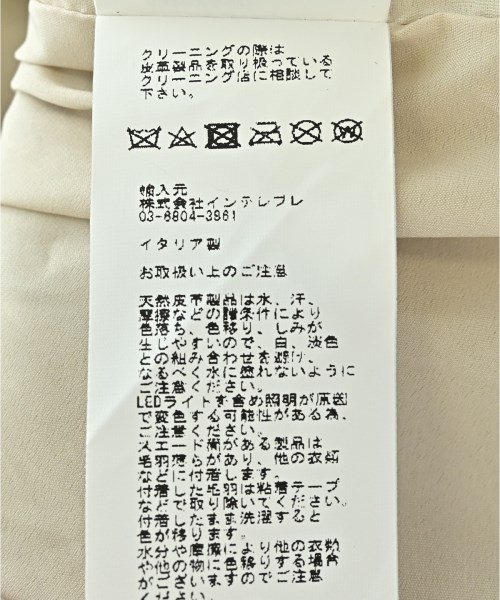 クリーニングの際は
皮革製品を取り扱っている
クリーニング店に相談して
下さい。
輸入元
株式会社インテレプレ
03-6804-3861
イタリア製
お取扱い上のご注意
天然皮革製品は水、汗、
摩擦などの諸条件により
色落ち、色移り、しみが
生じやすいので、白、淡色
との組み合わせを避け、
なるべく水に塗れないように
ご注意ください。
LEDライトを含め照明が原因
で変色する可能性がある為、
ご注意ください。
スエード面がある製品は
毛羽残らがあり、他の衣類
などに付着します。
付着した毛羽は粘着テープ
などで取り除いてください。
付着したまま洗濯すると
色が移ります。
水分や摩擦により他の衣類
や他の物に色移りする場合
がございますのでご注意
ください。